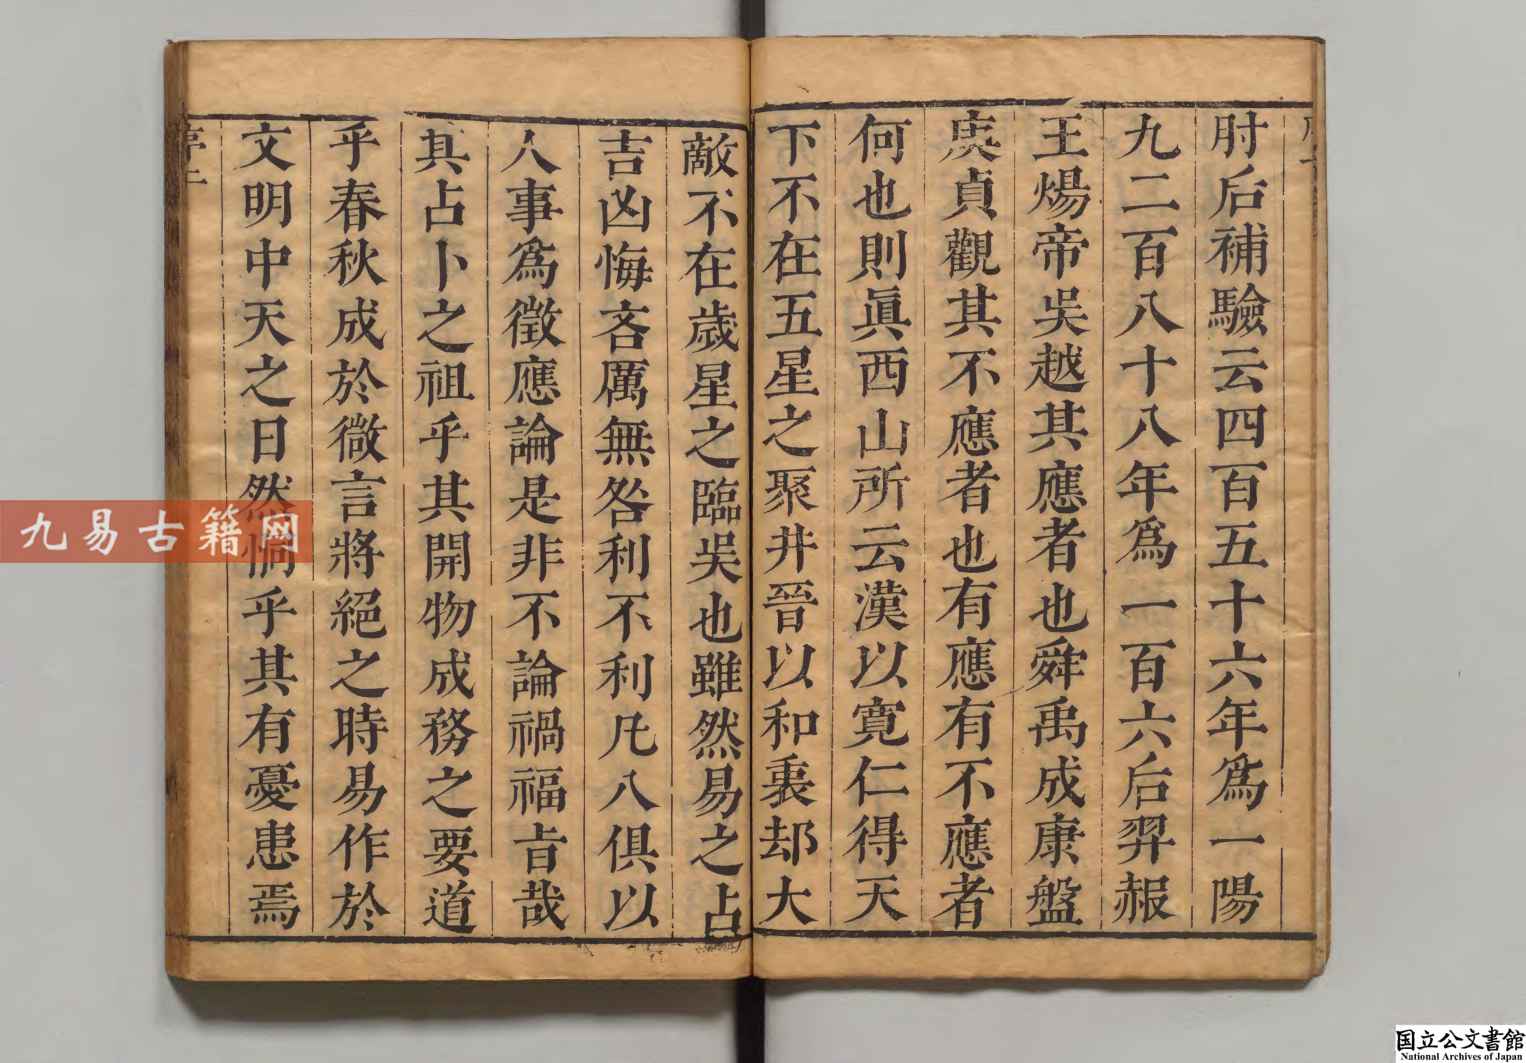 肘后補驗云四百五十六年爲一陽
九二百八十八年爲一百六后羿赧
王煬帝吳越其應者也舜禹成康盤
庚貞觀其不應者也有應有不應者
何也則眞西山所云漢以寛仁得天
下不在五星之聚井晉以和裏却大
敵不在歲星之臨吳也雖然易之占
吉凶悔吝厲無咎利不利凡八俱以
人事爲徵應論是非不論禍福旨哉
其占卜之祖乎其開物成務之要道
乎春秋成於微言將絕之時易作於
文明中天之日然惘乎其有憂患焉
序二
九易古籍网
国立公文書館
National Archives of Japan